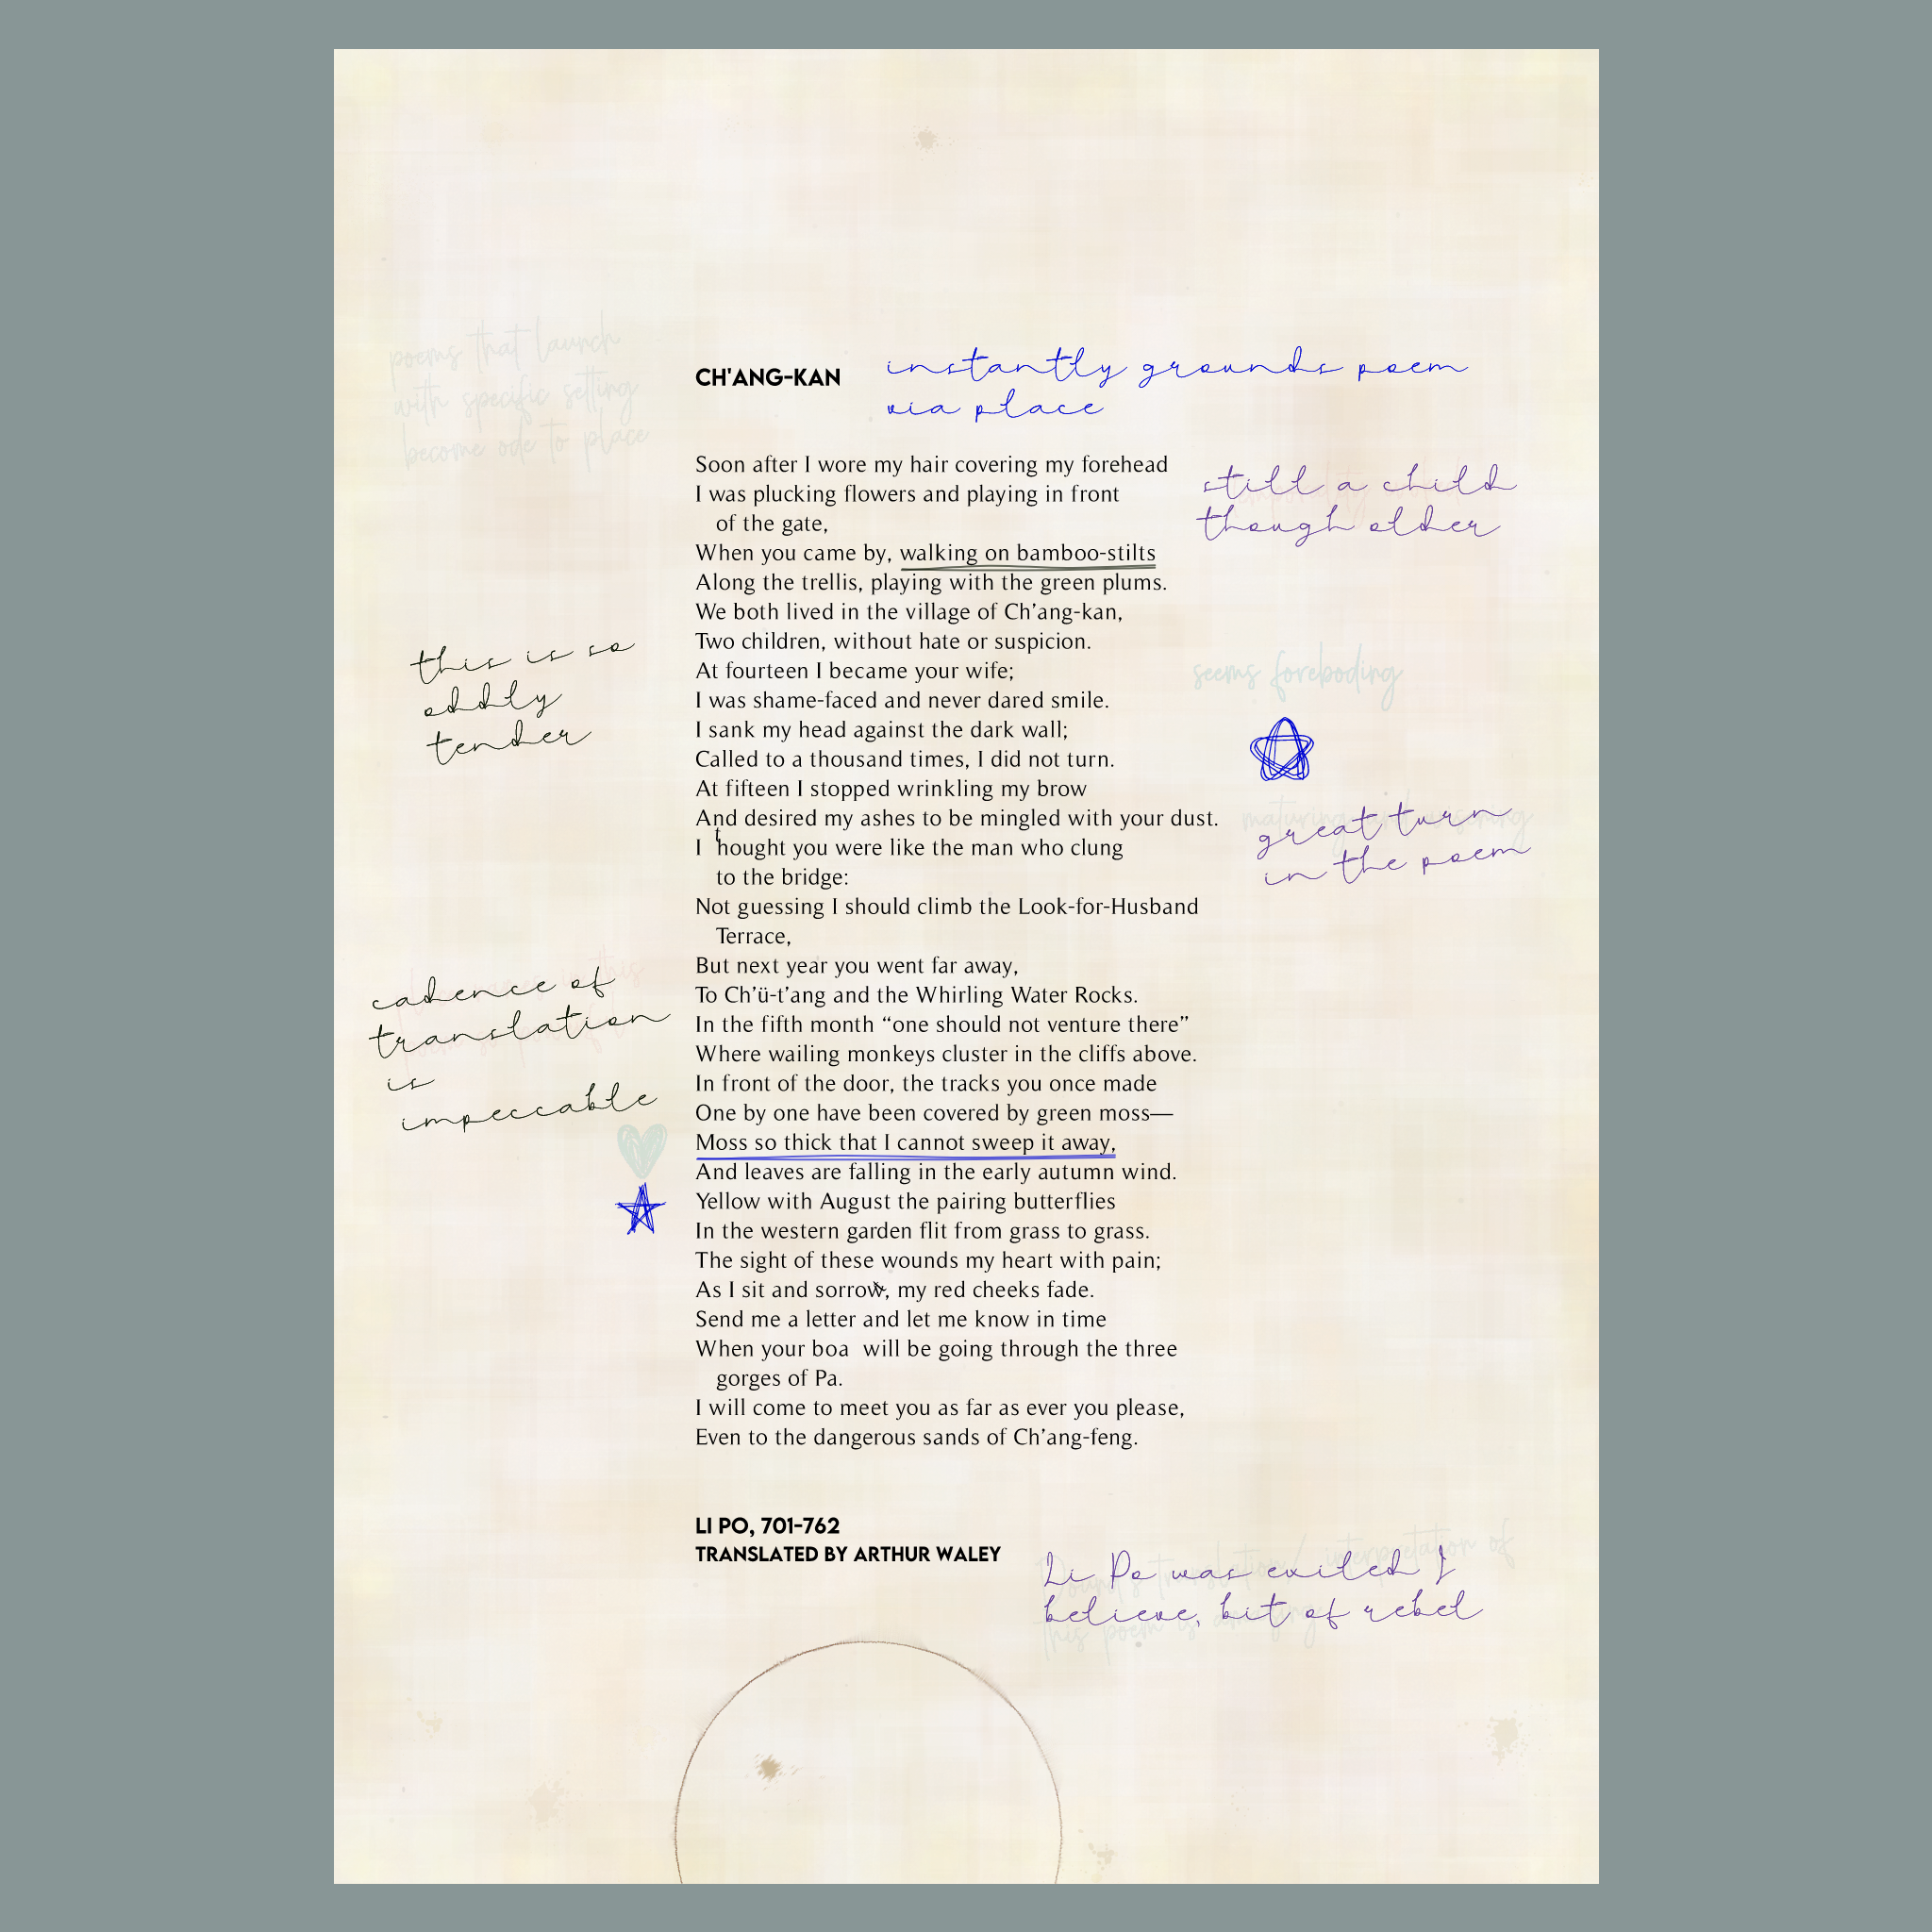 poems that launch
with specific setting
become ode to place
CH'ANG-KAN
instantly grounds poem
via place
Soon after I wore my hair covering my forehead
I was plucking flowers and playing in front
of the gate,
still a child
though older
When you came by, walking on bamboo-stilts
Along the trellis, playing with the green plums.
We both lived in the village of Ch’ang-kan,
Two children, without hate or suspicion.
this is so
oddly
tender
At fourteen I became your wife;
seems foreboding
I was shame-faced and never dared smile.
I sank my head against the dark wall;
Called to a thousand times, I did not turn.
At fifteen I stopped wrinkling my brow
And desired my ashes to be mingled with your dust.
maturing
great turn
in the poem
I thought you were like the man who clung
to the bridge:
Not guessing I should climb the Look-for-Husband
Terrace,
But next year you went far away,
To Ch’ü-t’ang and the Whirling Water Rocks.
cadence of
translation
is
impeccable
In the fifth month “one should not venture there”
Where wailing monkeys cluster in the cliffs above.
In front of the door, the tracks you once made
One by one have been covered by green moss—
Moss so thick that I cannot sweep it away,
And leaves are falling in the early autumn wind.
Yellow with August the pairing butterflies
In the western garden flit from grass to grass.
The sight of these wounds my heart with pain;
As I sit and sorrow, my red cheeks fade.
Send me a letter and let me know in time
When your boa will be going through the three
gorges of Pa.
I will come to meet you as far as ever you please,
Even to the dangerous sands of Ch’ang-feng.
LI PO, 701-762
TRANSLATED BY ARTHUR WALEY
Pound's translation/interpretation of
this poem is
Li Po was exiled I
believe, bit of rebel